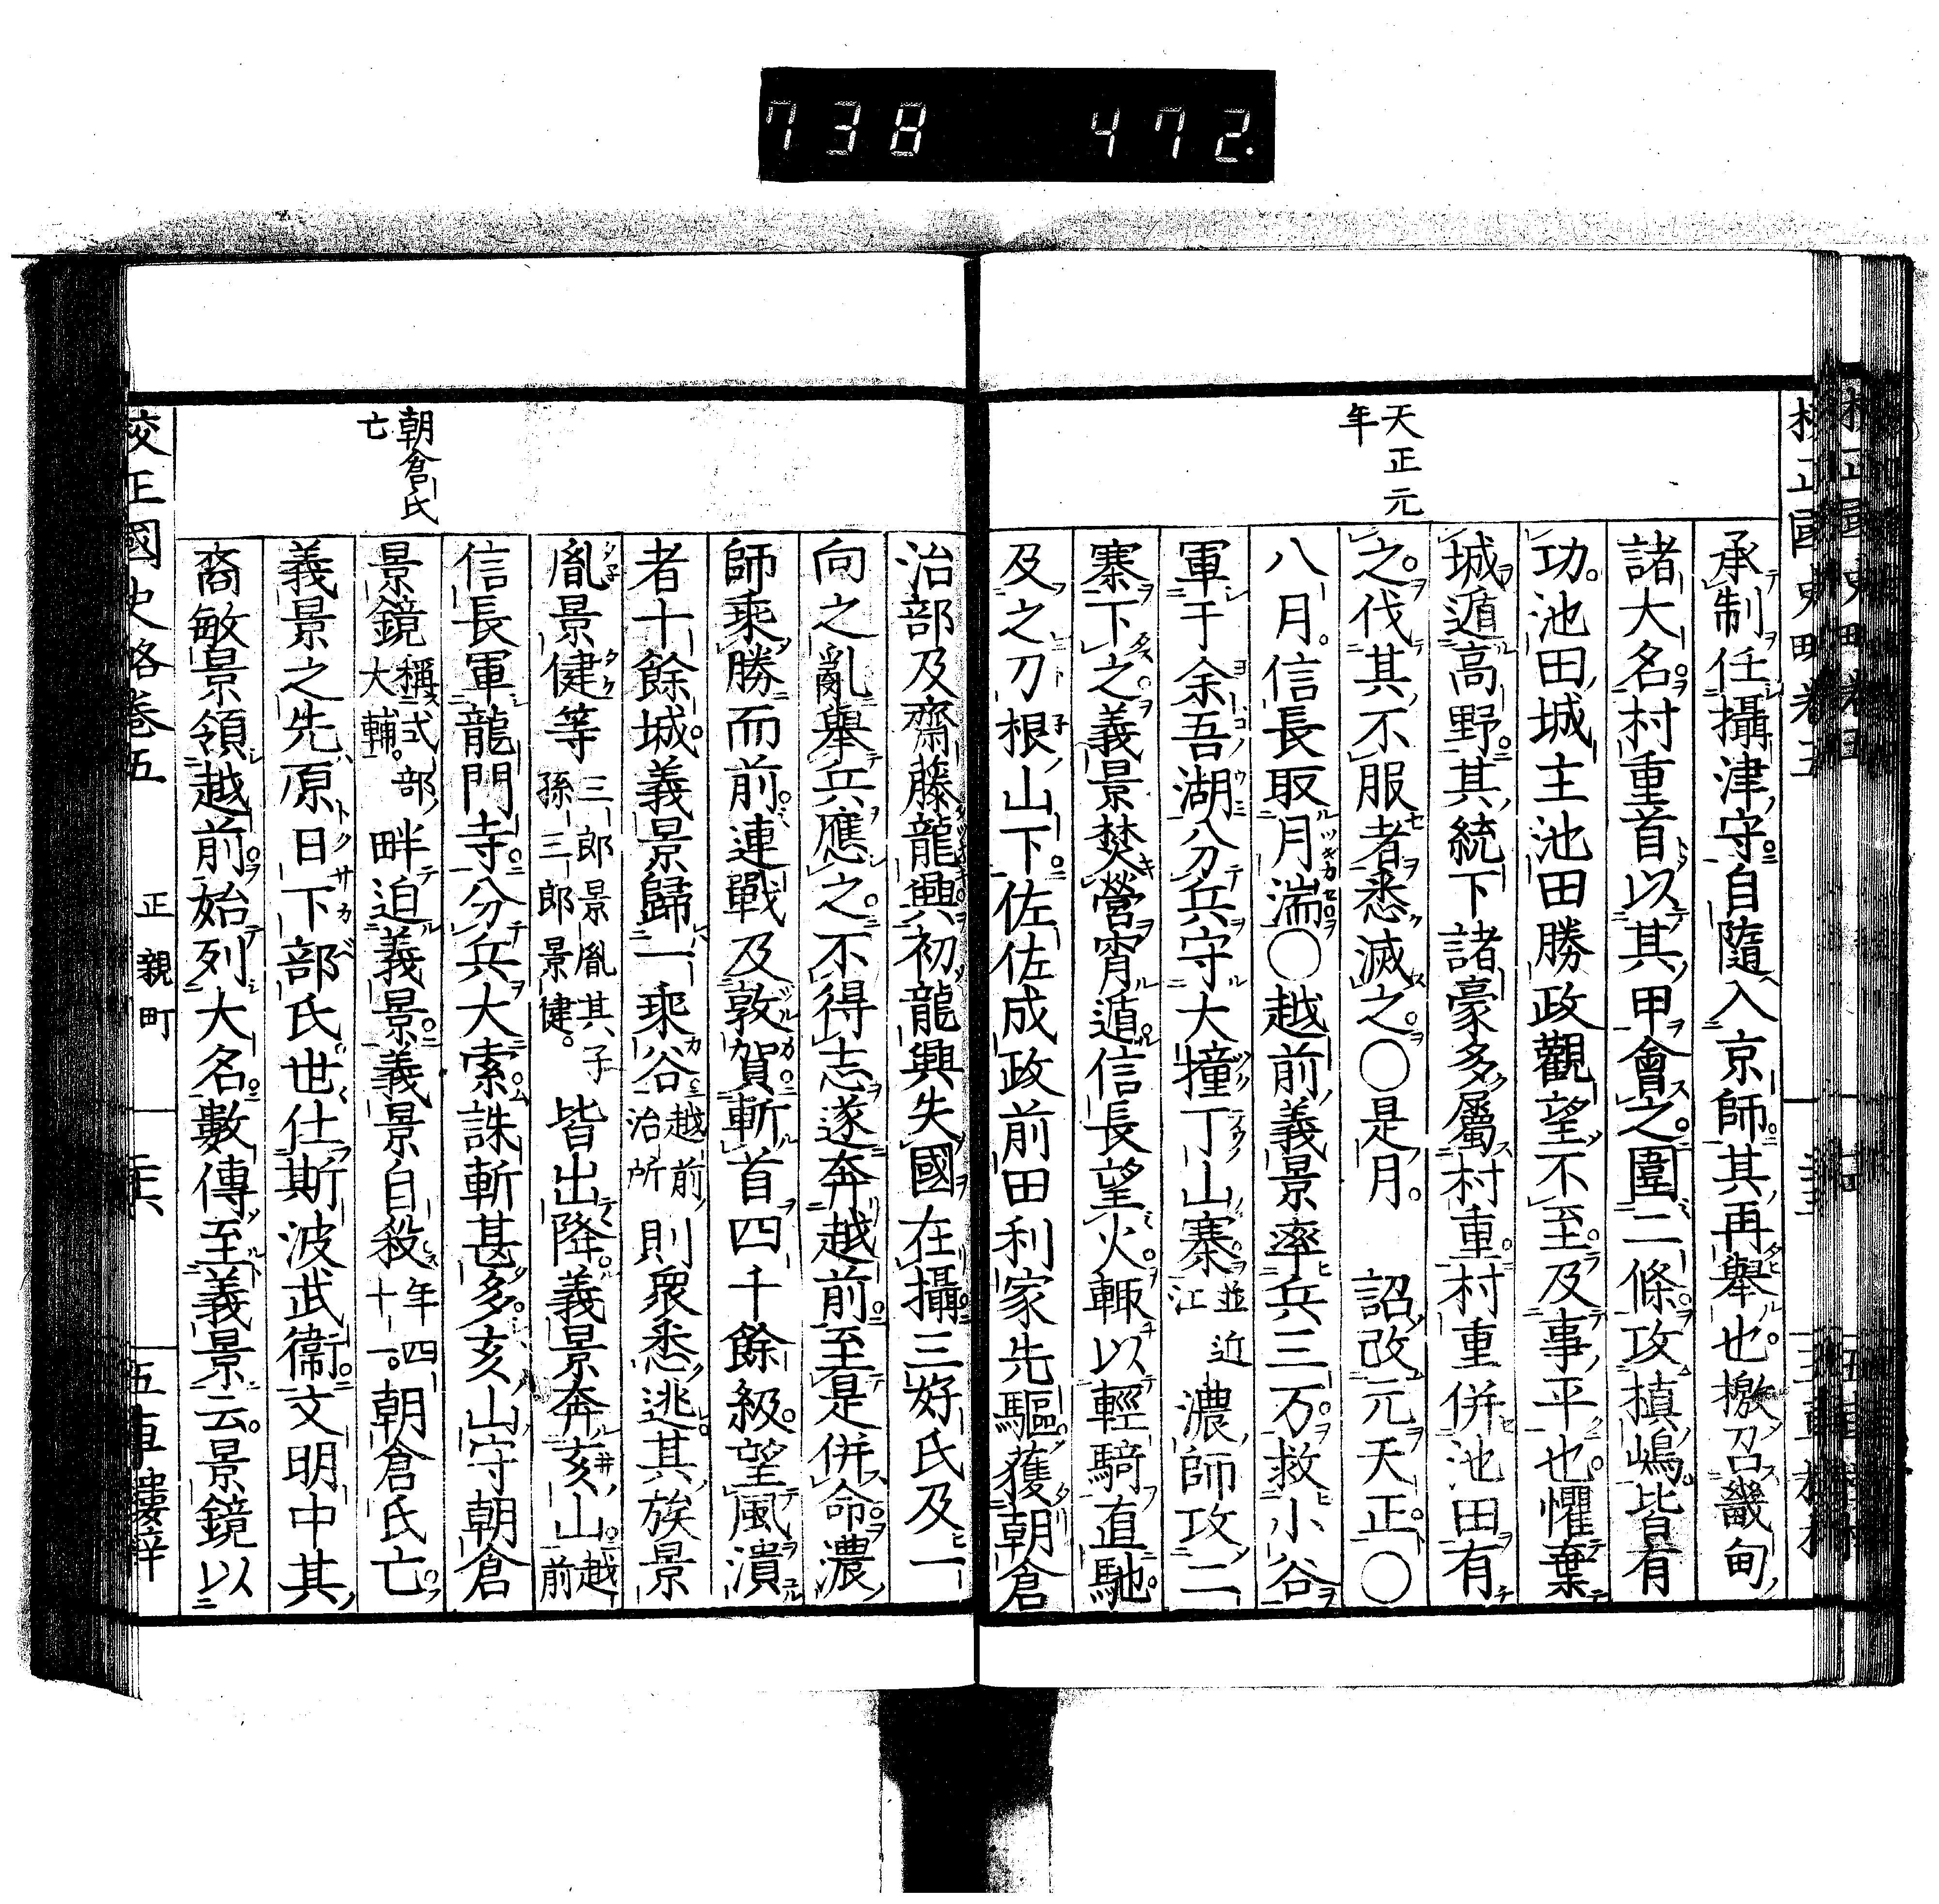 738 472.
天正元
年
承制任攝津守自隨入京師其再舉也檄召畿甸
諸大名村重首以其甲會之圍二條攻槙嶋皆有
功。池田城主池田勝政觀望不至及事平也懼棄
城遁高野其統下諸豪多屬村重村重併池田有
之。伐其不服者悉滅之〇是月。 詔改元天正〇
八月。信長取月湍〇越前義景率兵三万救小谷
軍于余吾湖分兵守大撞丁山寨並近江濃師攻二
寨下之義景焚營宵遁信長望火輙以輕騎直馳
及之刀根山下佐佐成政前田利家先驅獲朝倉
治部及齋藤龍興初龍興失國在攝三好氏及一
向之亂舉兵應之不得志遂奔越前至是併命濃
師乘勝而前連戰及敦賀斬首四千餘級望風潰
者十餘城義景歸一乘谷越前治所則衆悉逃其族景
胤景健等三郎景胤其子孫三郎景健。皆出降義景奔亥山越前
信長軍龍門寺分兵大索誅斬甚多亥山守朝倉
景鏡稱式部大輔。畔迫義景義景自殺年四十一。朝倉氏亡
義景之先原日下部氏世仕斯波武衞文明中其
裔敏景領越前始列大名數傳至義景云景鏡以
朝倉氏
亡
校正國史略卷五 正親町 五車樓梓